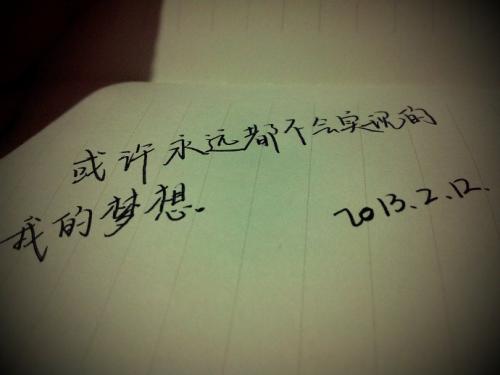 或许永远都不会实现的
我的梦想.
2013.2.12.